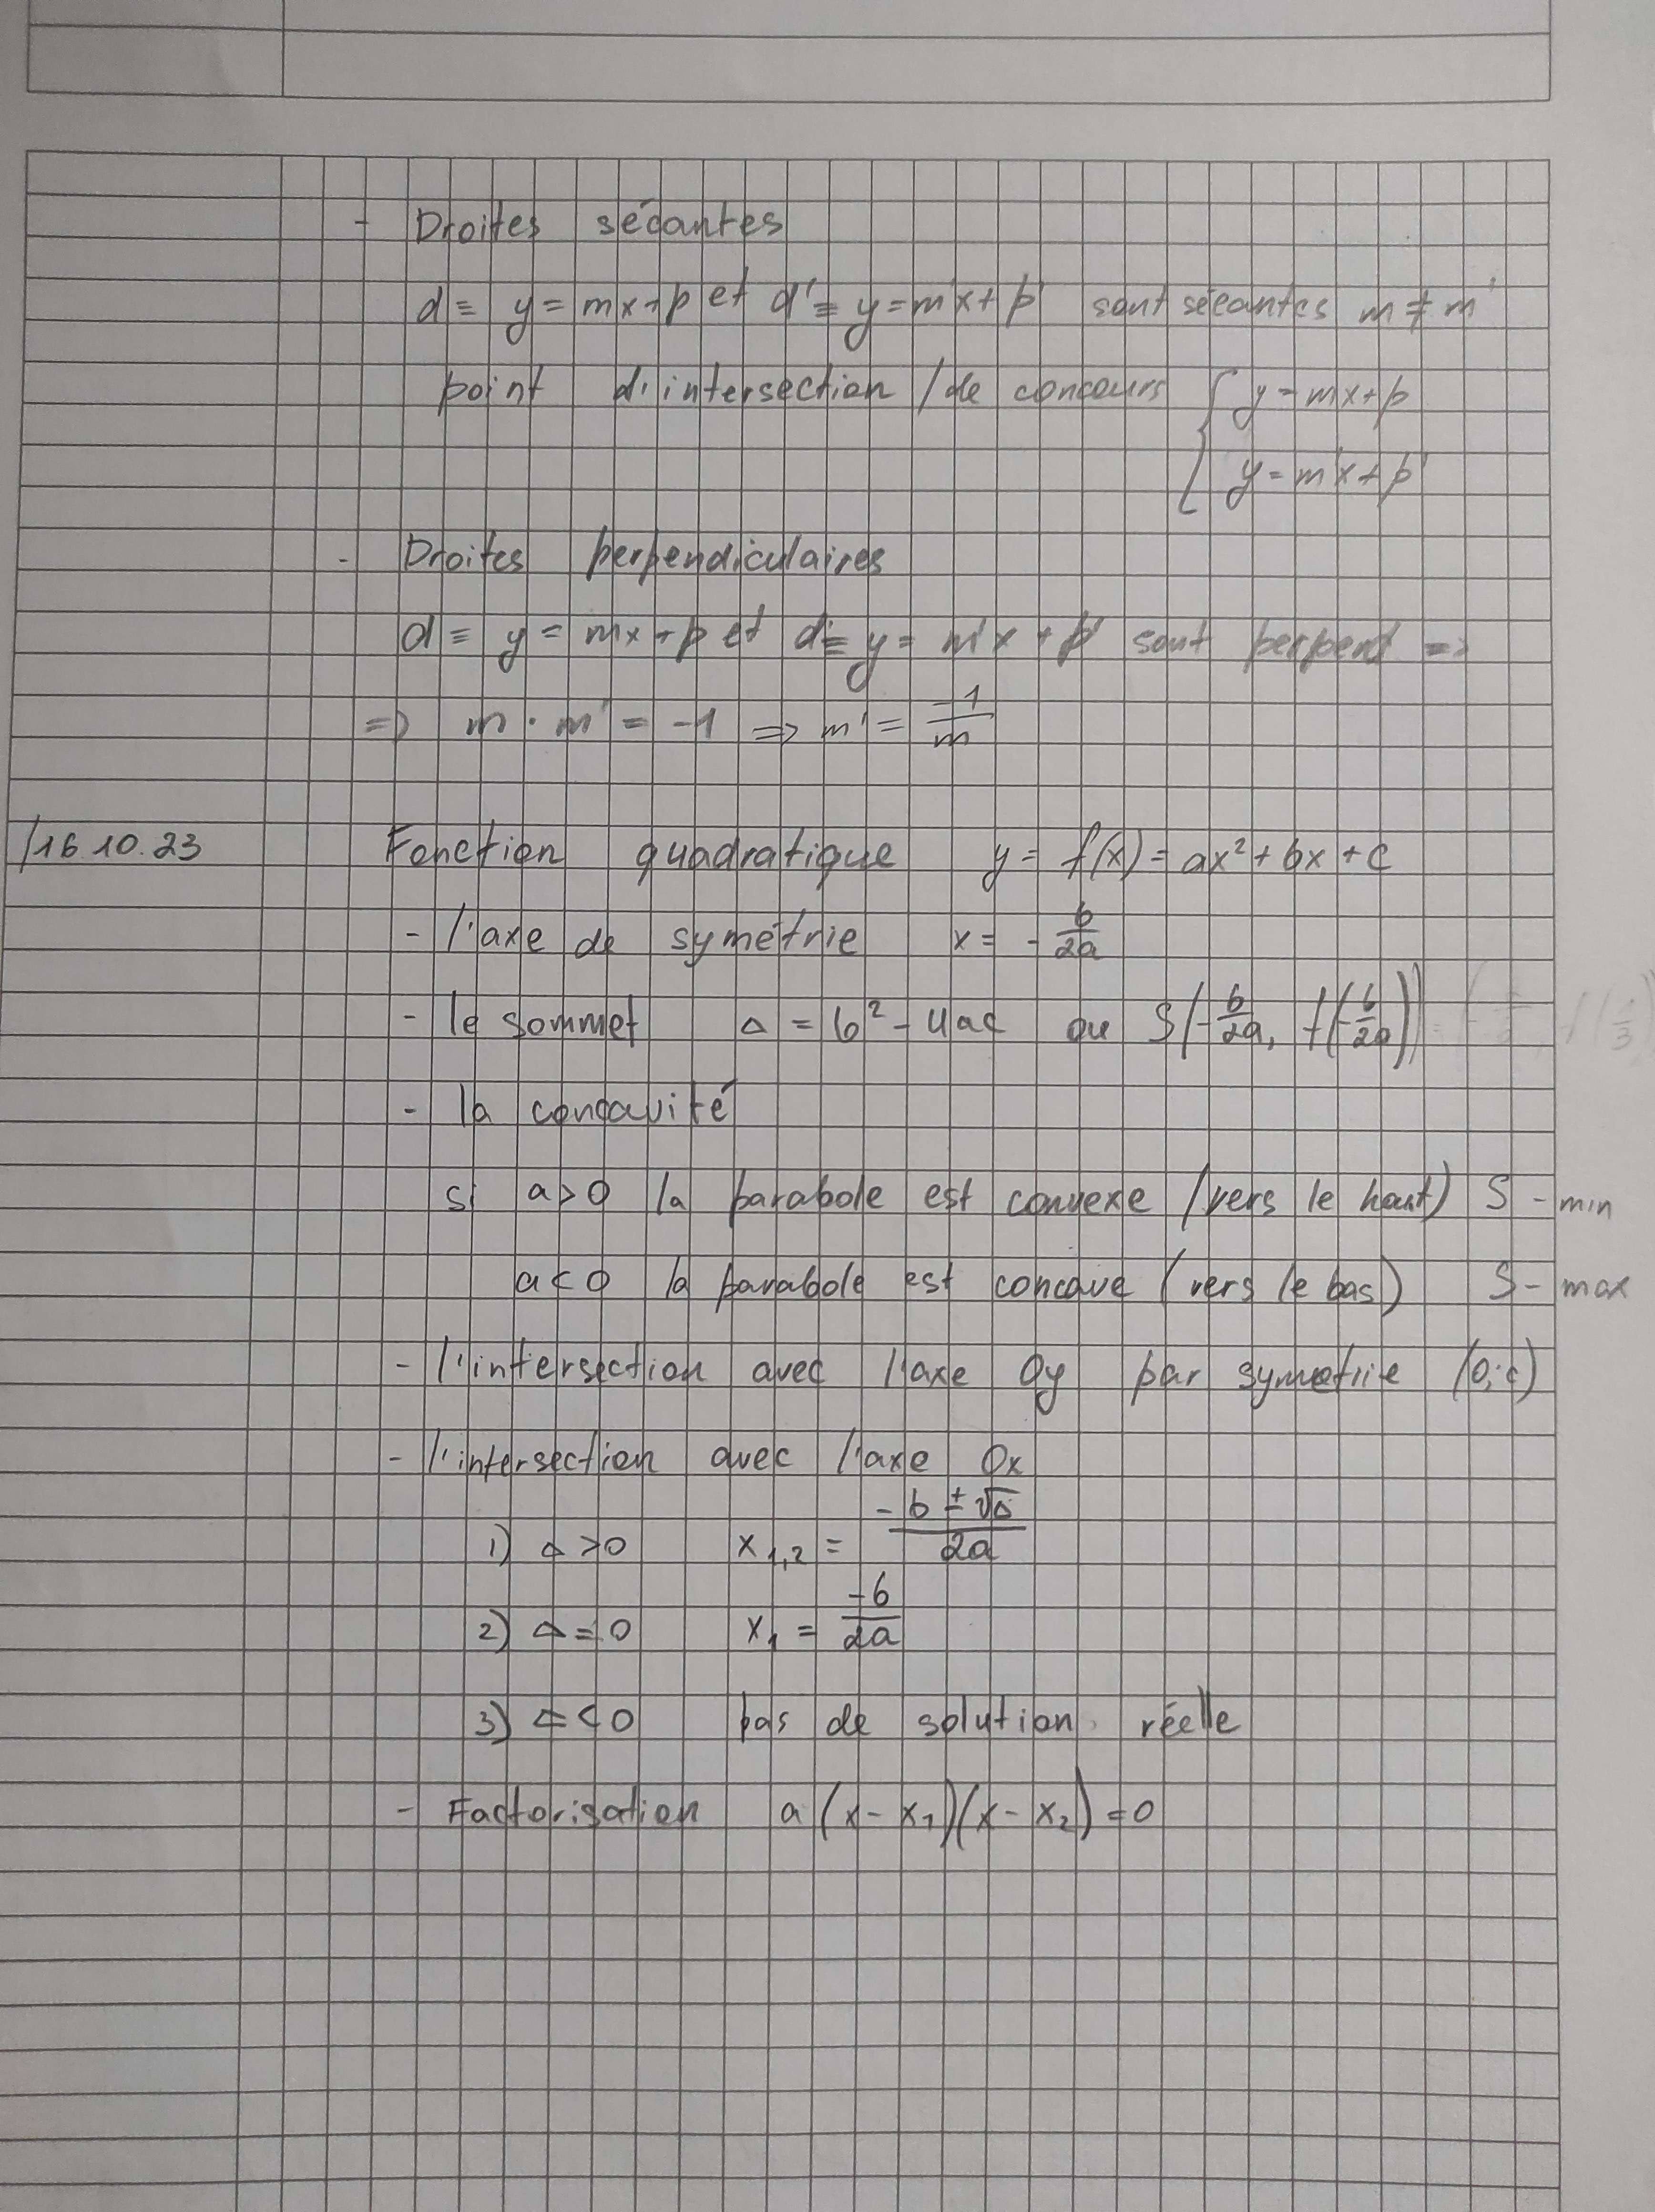 - Droites sécantes
d ≡ y = mx + p et d' ≡ y = m'x + p' sont sécantes m ≠ m'
point d'intersection / de concours { y = mx + p
{ y = m'x + p'
- Droites perpendiculaires
d ≡ y = mx + p et d' ≡ y = m'x + p' sont perpend =>
=> m · m' = -1 => m' = -1/m
16.10.23 Fonction quadratique y = f(x) = ax² + bx + c
- l'axe de symétrie x = - b/2a
- le sommet Δ = b² - 4ac ou S(-b/2a, f(-b/2a))
- la concavité
si a > 0 la parabole est convexe (vers le haut) S - min
a < 0 la parabole est concave (vers le bas) S - max
- l'intersection avec l'axe Oy par symetrie (0; c)
- l'intersection avec l'axe Ox
1) Δ > 0 x₁,₂ = (-b ± √Δ)/2a
2) Δ = 0 x₁ = -b/2a
3) Δ < 0 pas de solution réelle
- Factorisation a(x - x₁)(x - x₂) = 0